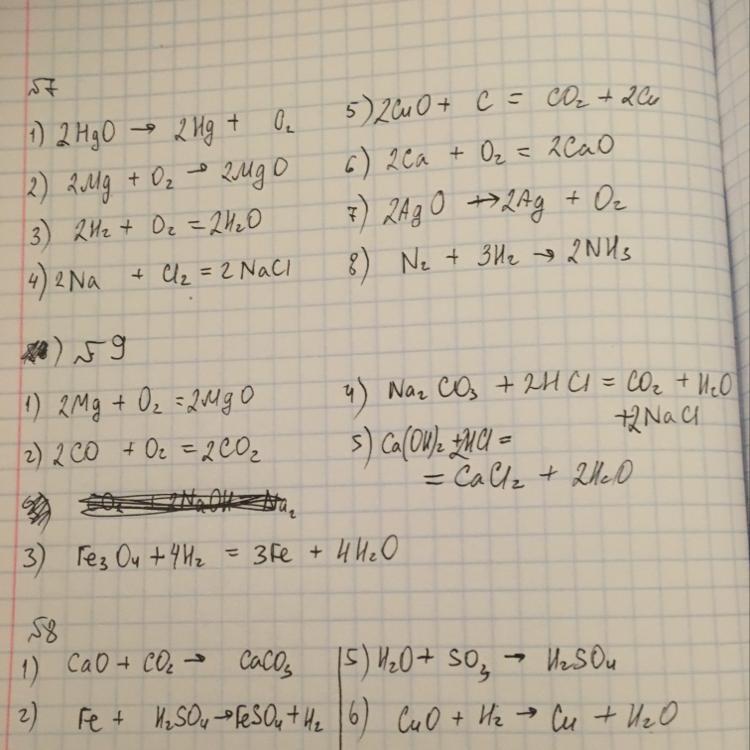 №7
1) 2HgO → 2Hg + O₂
2) 2Mg + O₂ → 2MgO
3) 2H₂ + O₂ = 2H₂O
4) 2Na + Cl₂ = 2NaCl
5) 2CuO + C = CO₂ + 2Cu
6) 2Ca + O₂ = 2CaO
7) 2AgO → 2Ag + O₂
8) N₂ + 3H₂ → 2NH₃
) №9
1) 2Mg + O₂ = 2MgO
2) 2CO + O₂ = 2CO₂
CO₂ + 2NaOH = Na₂
3) Fe₃O₄ + 4H₂ = 3Fe + 4H₂O
4) Na₂CO₃ + 2HCl = CO₂ + H₂O
+2NaCl
5) Ca(OH)₂ + 2HCl =
= CaCl₂ + 2H₂O
№8
1) CaO + CO₂ → CaCO₃
2) Fe + H₂SO₄ → FeSO₄ + H₂
5) H₂O + SO₃ → H₂SO₄
6) CuO + H₂ → Cu + H₂O